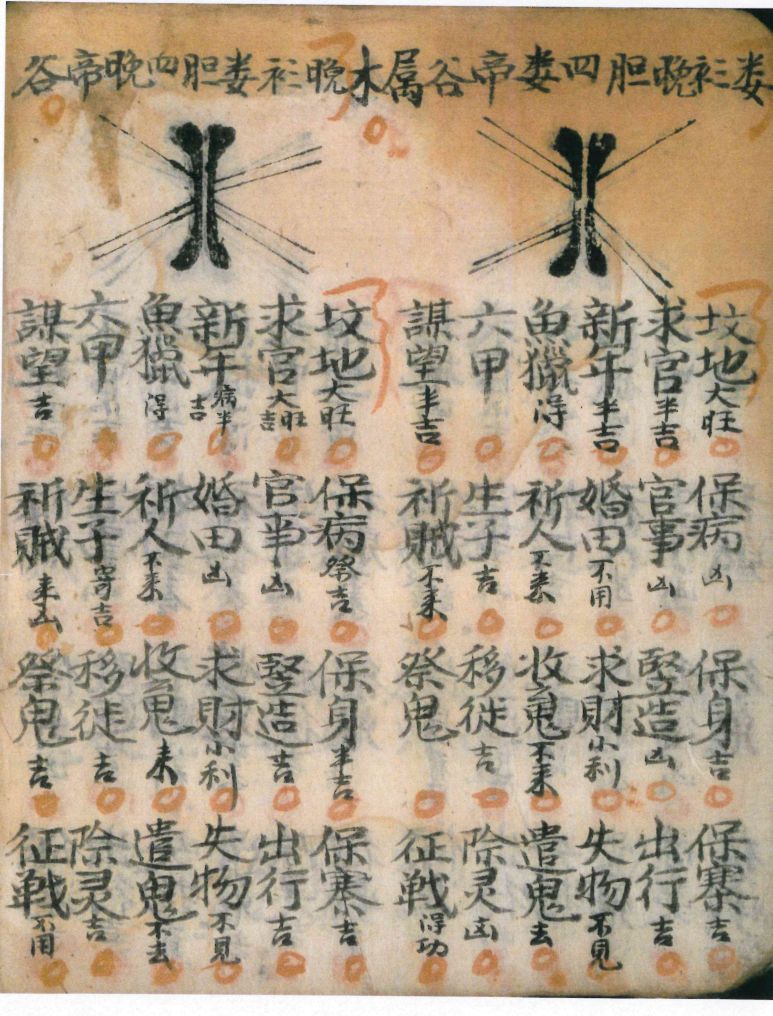 娄衫晚胆四娄帝谷属木
坟地大旺 保病凶 保身吉 保寨吉
求官半吉 官事凶 竪造凶 出行吉
新年半吉 婚田不用 求財小利 失物不見
魚獵得 祈人不来 收䰟不来 遣鬼去
六甲 生子吉 移徙吉 除灵凶
謀望半吉 祈賊不来 祭鬼 征戦得功
晚衫娄胆四晚帝谷
坟地大旺 保病祭吉 保身半吉 保寨吉
求官大旺吉 官事凶 竪造吉 出行吉
新年病半吉 婚田凶 求財小利 失物不見
魚獵得 祈人不来 收䰟来 遣鬼不去
六甲 生子寄吉 移徙吉 除灵吉
謀望吉 祈賊来凶 祭鬼吉 征戦不用